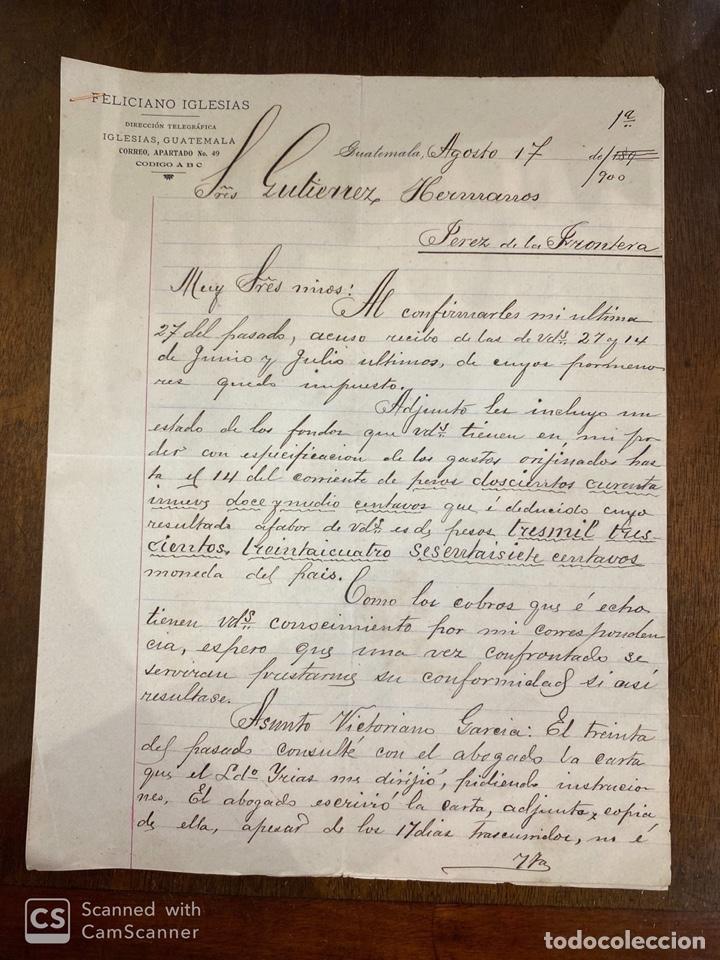 FELICIANO IGLESIAS
DIRECCIÓN TELEGRÁFICA
IGLESIAS, GUATEMALA
CORREO, APARTADO No. 49
CODIGO A B C
1ª
Guatemala, Agosto 17 de 189
/900
Sres Gutierrez Hermanos
Perez de la Frontera
Muy Sres mios: Al confirmarles mi ultima
27 del pasado, acuso recibo de las de Vds. 27 y 14
de Junio y Julio ultimos, de cuyos pormeno
res quedo impuesto.
Adjunto les incluyo un
estado de los fondos que Vds. tienen en mi po
der con especificacion de los gastos originados has
ta el 14 del corriente de pesos doscientos curenta
inueve doce ymedio centavos que é deducido cuyo
resultado afabor de Vds. es de pesos tresmil tres-
cientos treintaicuatro sesentaisiete centavos
moneda del pais.
Como los cobros que é echo
tienen Vds. conocimiento por mi corresponden
cia, espero que una vez confrontado se
serviran prestarme su conformidad si así
resultase.
Asunto Victoriano Garcia: El treinta
del pasado consulté con el abogado la carta
que el Ldo. Yrias me dirijió, pidiendo instrucio
nes. El abogado escrivió la carta, adjunta copia
de ella, apesar de los 17 dias trascurridos, no é
CS Scanned with
CamScanner
todocoleccion